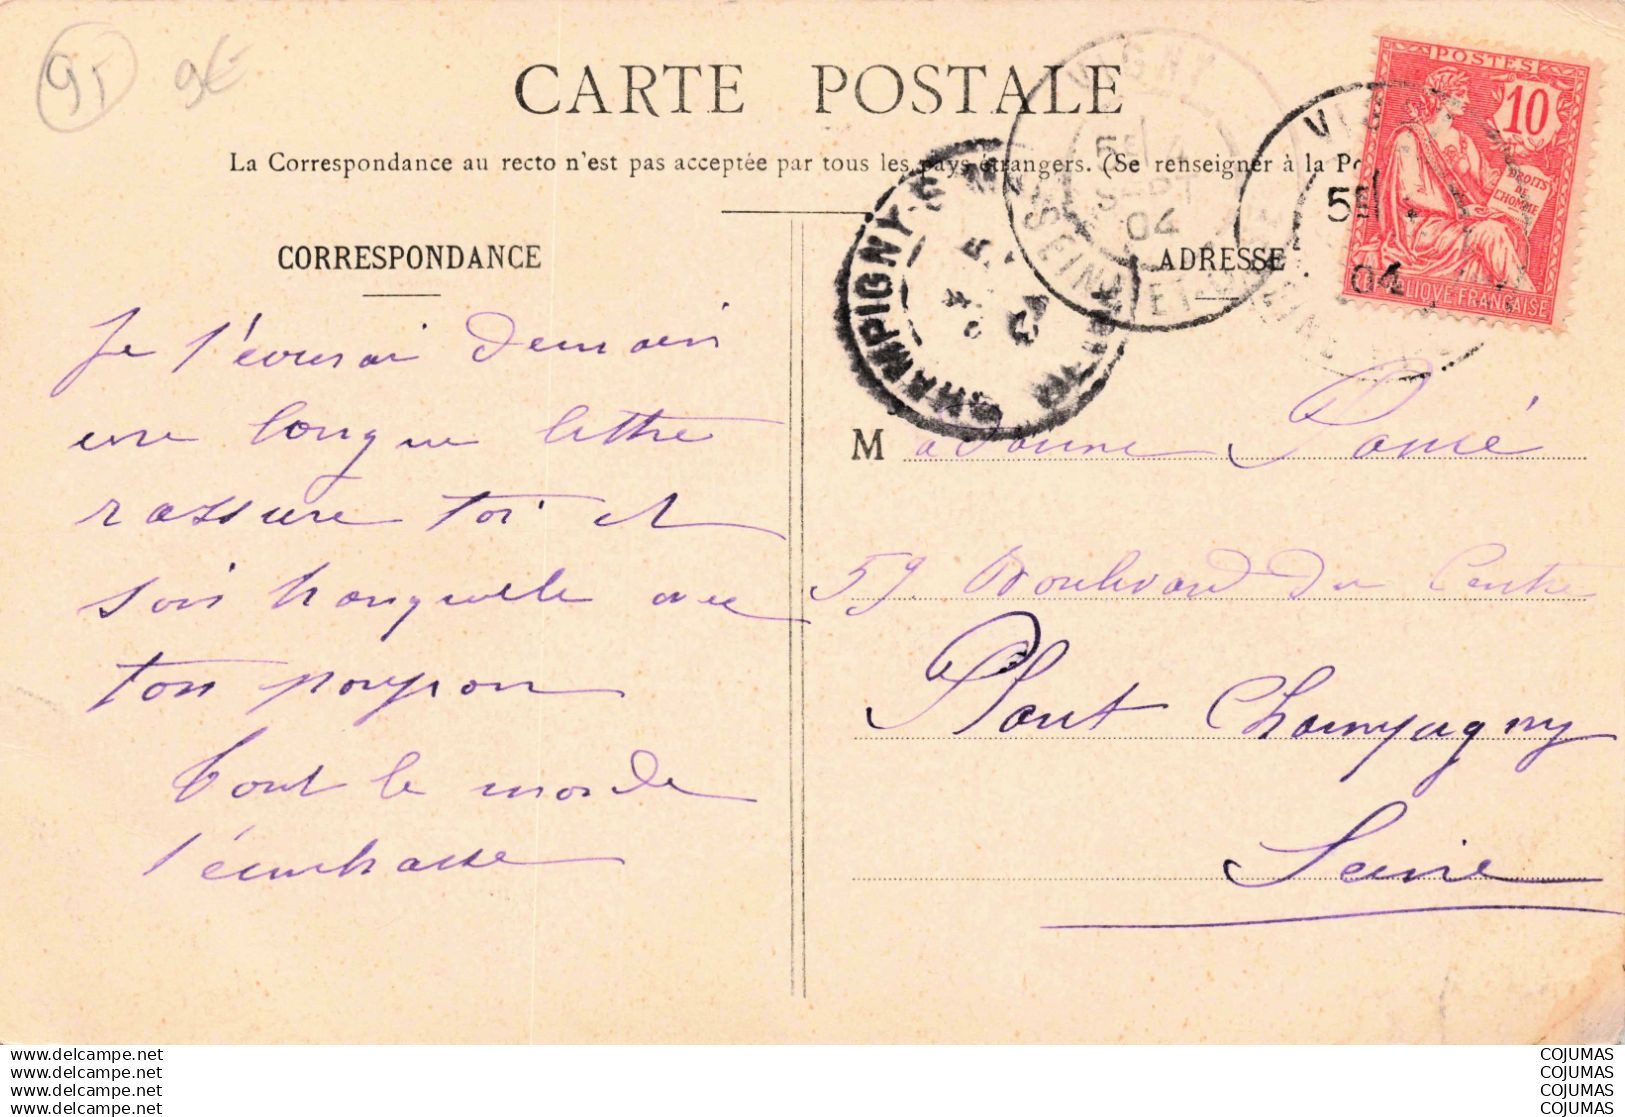 95 9€
CARTE POSTALE
La Correspondance au recto n'est pas acceptée par tous les pays étrangers. (Se renseigner à la Po
CORRESPONDANCE
Je t'écrirai demain
une longue lettre
rassure toi et
sois tranquille avec
ton poupon
tout le monde
t'embrasse
ADRESSE
Madame
59 Boulevard du Centre
Plant Champigny
Seine
VIGNY
5E
SEPT
04
SEINE-ET-OISE
CHAMPIGNY-S-M
04
VIG
5E
04
POSTES
10
DROITS
DE
L'HOMME
REPUBLIQUE FRANÇAISE
www.delcampe.net
www.delcampe.net
www.delcampe.net
www.delcampe.net
COJUMAS
COJUMAS
COJUMAS
COJUMAS